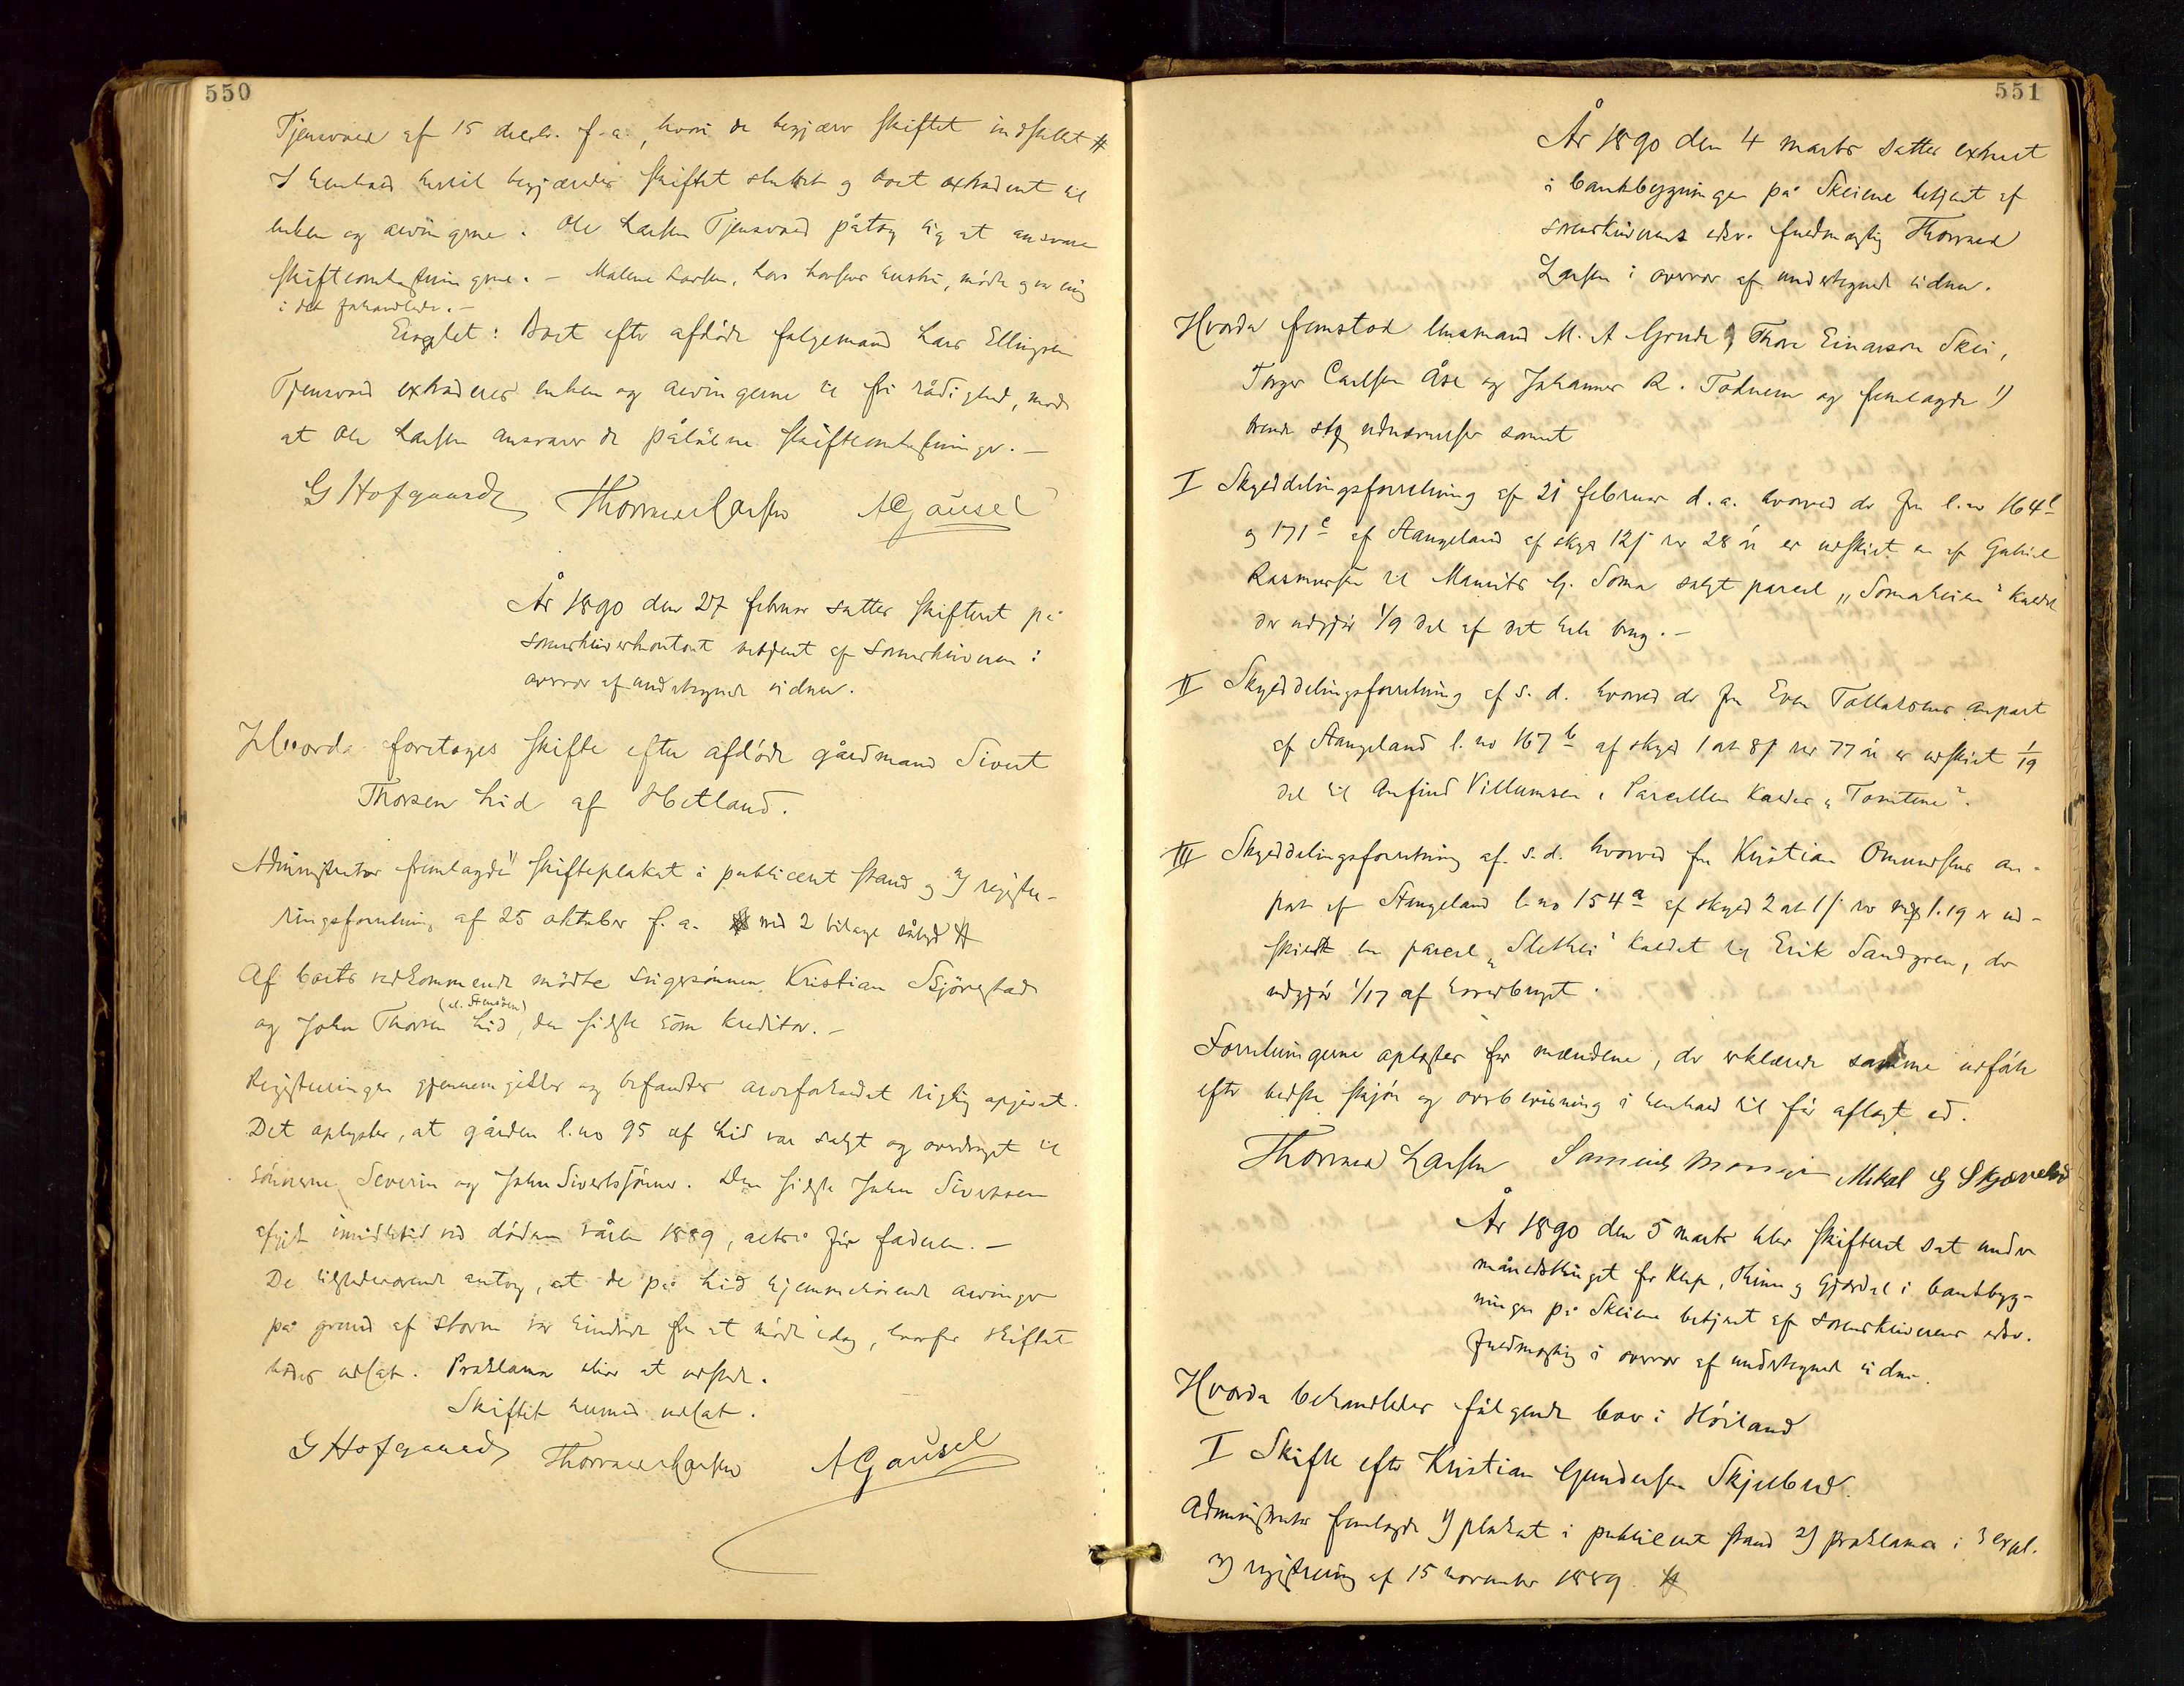 550
Tjensvold af 15 decbr. f. a., hvori de begjærer skiftet indstillet #
I henhold hertil begjærdes skiftet sluttet og boet extraderet til
enken og arvingerne. Ole Larsen Tjensvold påtog sig at ansvare
skifteomkostningerne. – Malene Larsen, Lars Larsens hustru, mødte og var enig
i det forhandlede. –
Eragtet: Boet efter afdøde følgemand Lars Ellingsen
Tjensvold extraderes enken og arvingerne til fri rådighed, mod
at Ole Larsen ansvarer de påløbne skifteomkostninger. –
G Hofgaard Thorvald Larsen A Gausel
År 1890 den 27 februar sattes skifteret på
sorenskriverkontoret betjent af sorenskriveren i
overvær af undertegnede vidner.
Hvorda foretoges skifte efter afdøde gårdmand Sivert
Thorsen Lid af Hetland.
Administrator fremlagde 1) skifteplakat i publiceret stand og 2) registe-
ringsforretning af 25 oktober f. a. med 2 bilage sålyd #
Af boets vedkommende mødte svigersønnen Kristian Sjørestad
og John Thorsen Lid, den sidste som kreditor. –
Registeringen gjennemgikkes og befandtes overforholdet rigtig opgjort.
Det oplystes, at gården l. no 95 af Lid var solgt og overdraget til
sønnerne Severin og John Sivertsønner. Den sidste John Sivertsen
afgik imidlertid ved døden våren 1889, altså før faderen. –
De tilstedeværende antog, at de på Lid hjemmehørende arvinger
på grund af storm var hindrede fra at møde idag, hvorfor skiftet
bødes udsat. Proklama bliver at udstede.
Skiftet hermed udsat.
G Hofgaard Thorvald Larsen A Gausel
551
År 1890 den 4 marts sattes extraret
i bankbygningen på Skeiene betjent af
sorenskriverens edsv. fuldmægtig Thorvald
Larsen i overvær af undertegnede vidner.
Hvorda fremstod lensmand M. A Grude, Thore Einarson Skei,
Torger Carlsen Åse og Johannes R. Todnem og fremlagde 1)
trende stk udnævnelser samt
I Skylddelingsforretning af 21 februar d. a. hvorved der fra l. no 164
og 171 c af Stangeland af skyld 12 rev 28 øre er udskilt en af Gabriel
Rasmussen til Maurits G. Soma solgt parcel „Somaheien" kaldet
der udgjør 1/9 del af det hele brug. –
II Skylddelingsforretning af s. d. hvorved der fra Even Tollaksens anpart
af Stangeland l. no 167 b af skyld 1 ort 8 rev 77 øre er udskilt 1/19
del til Anfind Villumsen. Parcellen kaldes „Tomtene".
III Skylddelingsforretning af s. d. hvorved fra Kristian Omundsens an-
part af Stangeland l. no 154 a af skyld 2 ort 1 rev 1.19 er ud-
skildt en parcel „Slethei" kaldet til Erik Sandgren, der
udgjør 1/17 af hovedbruget.
Forretningerne oplæstes for mændene, der erklærede samme udført
efter bedste skjøn og overbevisning i henhold til før aflagt ed.
Thorvald Larsen Mikal G Skjævelid
År 1890 den 5 marts blev skifteret sat under
månedstinget for Klep, Time og Gjesdal i bankbyg-
ningen på Skeiene betjent af sorenskriverens edsv.
fuldmægtig i overvær af undertegnede vidner.
Hvorda behandledes følgende boer i Høiland
I Skifte efter Kristian Gundersen Skjelbred.
Administrator fremlagde 1) plakat i publiceret stand 2) proklama i 3 expl.
3) registrering af 15 november 1889. #